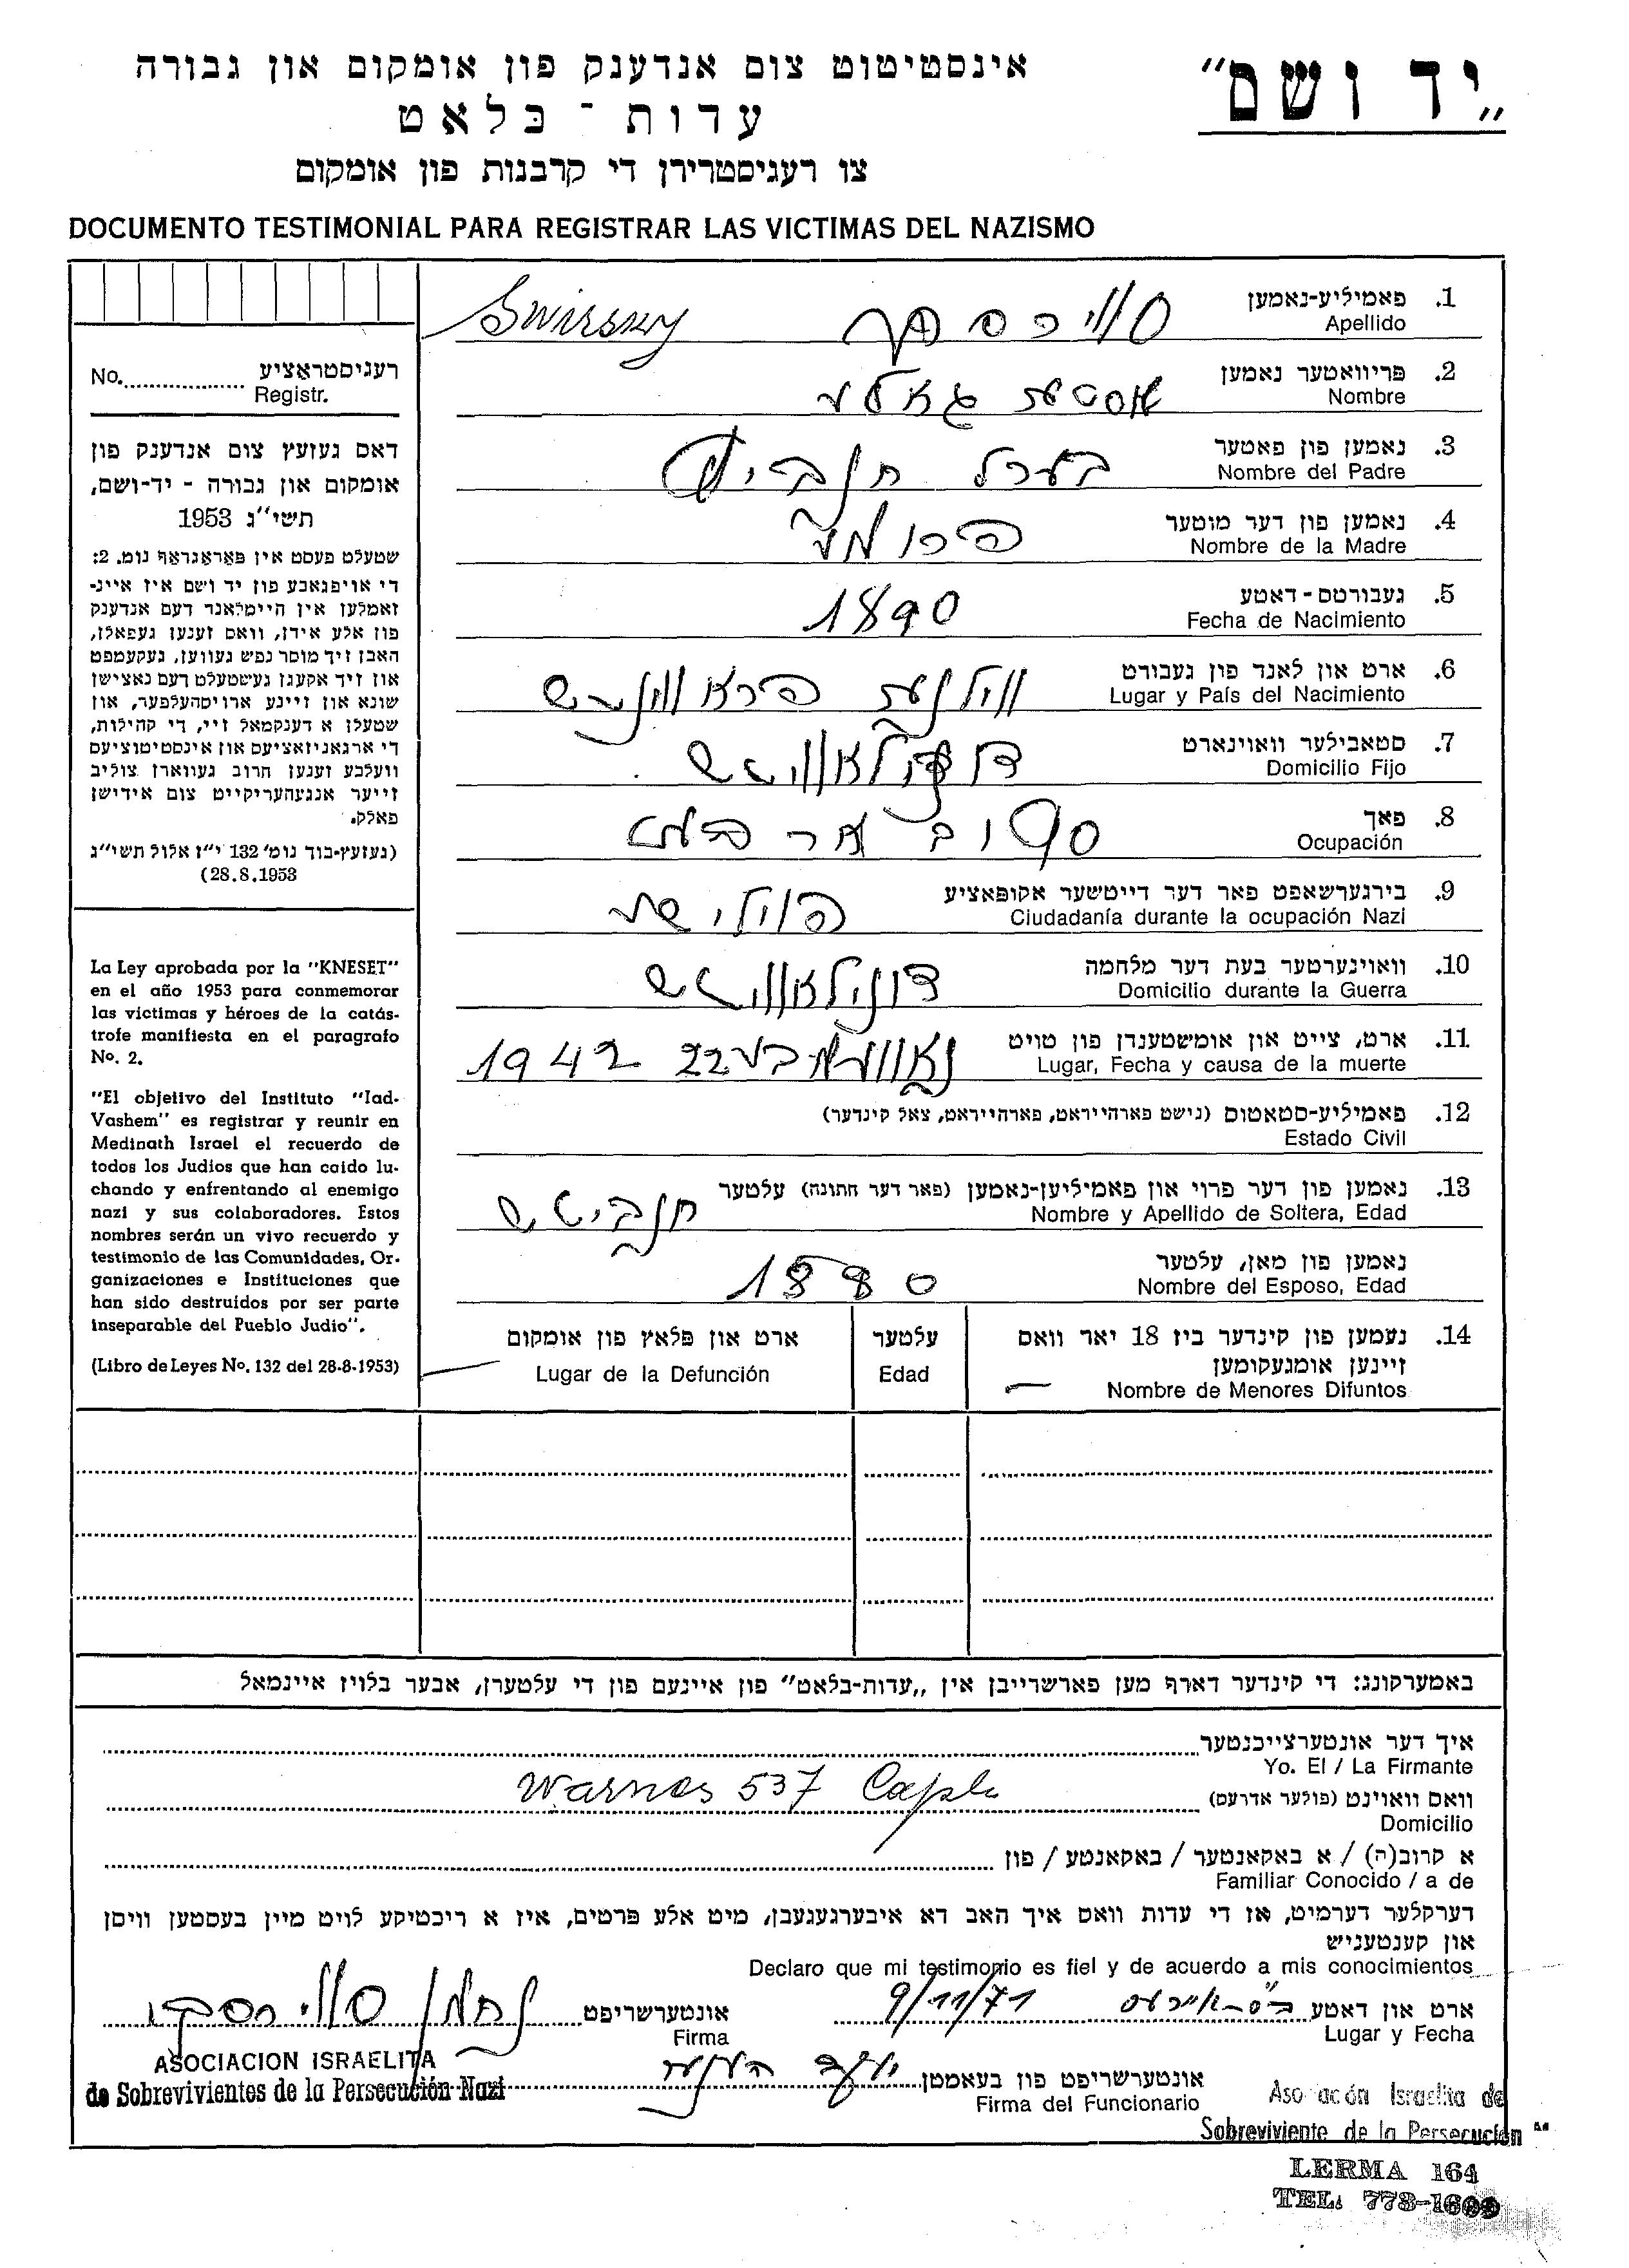 „יד ושם"
אינסטיטוט צום אנדענק פון אומקום און גבורה
עדות - בלאט
צו רעגיסטרירן די קרבנות פון אומקום
DOCUMENTO TESTIMONIAL PARA REGISTRAR LAS VICTIMAS DEL NAZISMO
רעגיסטראציע
No. Registr.
דאס געזעץ צום אנדענק פון
אומקום און גבורה - יד-ושם,
תשי"ג 1953
שטעלט פעסט אין פאראגראף נומ. 2:
די אויפגאבע פון יד ושם איז איינ-
זאמלען אין היימלאנד דעם אנדענק
פון אלע אידן, וואס זענען געפאלן,
האבן זיך מוסר נפש געווען, געקעמפט
און זיך אקעגן געשטעלט דעם נאצישן
שונא און זיינע ארויסהעלפער, און
שטעלן א דענקמאל זיי, די קהילות,
די ארגאניזאציעס און אינסטיטוציעס
וועלכע זענען חרוב געווארן צוליב
זייער אנגעהעריקייט צום אידישן
פאלק.
(געזעץ-בוך נומ' 132 י"ז אלול תשי"ג
28.8.1953)
La Ley aprobada por la "KNESET"
en el año 1953 para conmemorar
las victimas y héroes de la catás-
trofe manifiesta en el paragrafo
Nº. 2.
"El objetivo del Instituto "Iad-
Vashem" es registrar y reunir en
Medinath Israel el recuerdo de
todos los Judios que han caido lu-
chando y enfrentando al enemigo
nazi y sus colaboradores. Estos
nombres serán un vivo recuerdo y
testimonio de las Comunidades, Or-
ganizaciones e Instituciones que
han sido destruidos por ser parte
inseparable del Pueblo Judio".
(Libro de Leyes Nº. 132 del 28-8-1953)
1. פאמיליע-נאמען סווירסקי Swirsky
Apellido
2. פריוואטער נאמען
Nombre
3. נאמען פון פאטער בערל
Nombre del Padre
4. נאמען פון דער מוטער פרומע
Nombre de la Madre
5. געבורטס-דאטע 1890
Fecha de Nacimiento
6. ארט און לאנד פון געבורט ווילנער פראווינץ
Lugar y País del Nacimiento
7. סטאבילער וואוינארט דוקילאוויץ
Domicilio Fijo
8. פאך
Ocupación
9. בירגערשאפט פאר דער דייטשער אקופאציע פוילישע
Ciudadanía durante la ocupación Nazi
10. וואוינערטער בעת דער מלחמה
Domicilio durante la Guerra
11. ארט, צייט און אומשטענדן פון טויט נאוועמבער 22 1942
Lugar, Fecha y causa de la muerte
12. פאמיליע-סטאטוס (נישט פארהייראט, פארהייראט, צאל קינדער)
Estado Civil
13. נאמען פון דער פרוי און פאמיליען-נאמען (פאר דער חתונה) עלטער
Nombre y Apellido de Soltera, Edad
נאמען פון מאן, עלטער 1880
Nombre del Esposo, Edad
14. נעמען פון קינדער ביז 18 יאר וואס עלטער ארט און פלאץ פון אומקום
זיינען אומגעקומען
Nombre de Menores Difuntos Edad Lugar de la Defunción
באמערקונג: די קינדער דארף מען פארשרייבן אין „עדות-בלאט" פון איינעם פון די עלטערן, אבער בלויז איינמאל
איך דער אונטערצייכנטער
Yo. El / La Firmante
וואס וואוינט (פולער אדרעס) Warnes 537 Cap
Domicilio
א קרוב(ה) / א באקאנטער / באקאנטע / פון
Familiar Conocido / a de
דערקלער דערמיט, אז די עדות וואס איך האב דא איבערגעגעבן, מיט אלע פרטים, איז א ריכטיקע לויט מיין בעסטען וויסן
און קענטעניש
Declaro que mi testimonio es fiel y de acuerdo a mis conocimientos
ארט און דאטע ב"ס-איירעס 9/11/71 אונטערשריפט נחמן סווירסקי
Lugar y Fecha Firma
אונטערשריפט פון בעאמטן
Firma del Funcionario
ASOCIACION ISRAELITA
de Sobrevivientes de la Persecución Nazi
Asociación Israelita de
Sobreviviente de la Persecución
LERMA 164
TEL: 773-